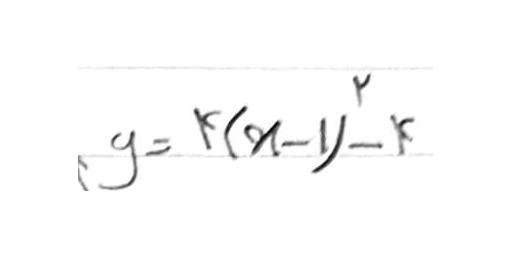 y = ۴(x-1)^۲ - ۴